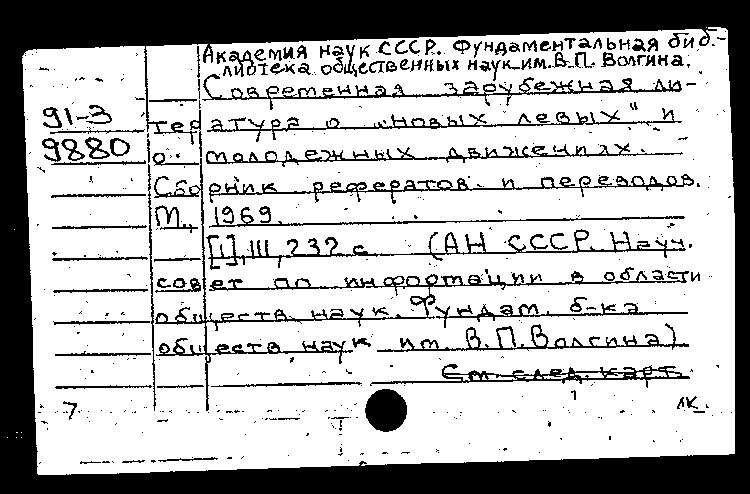 Академия наук СССР. Фундаментальная биб-
лиотека общественных наук им. В.П. Волгина.
Современная зарубежная ли-
91-3
тература о "новых левых" и
9880
о молодежных движениях.
Сборник рефератов и переводов.
М., 1969.
[1], III, 232 с. (АН СССР. Науч.
совет по информации в области
обществ. наук. Фундам. б-ка
обществ. наук им. В.П. Волгина)
См. след. карт.
7
ЛК.